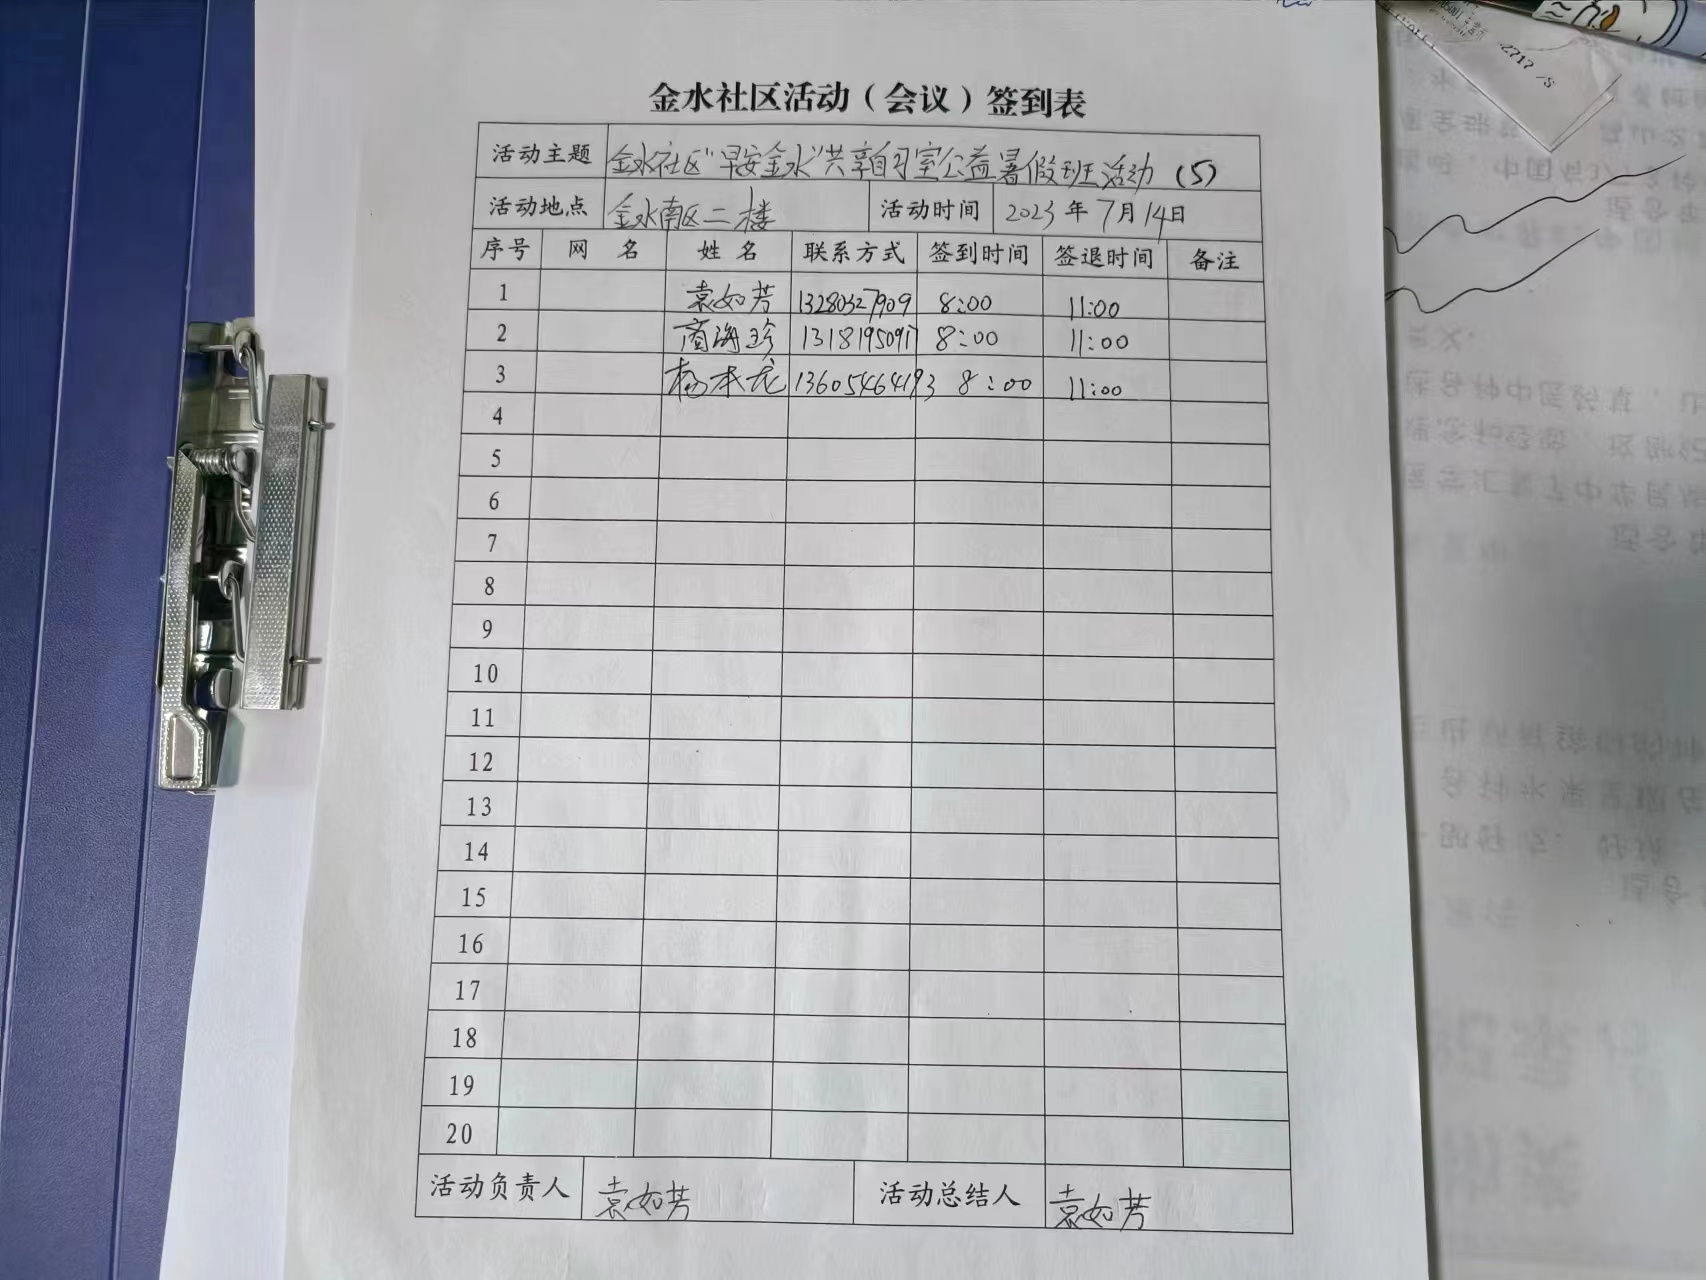 金水社区活动（会议）签到表
活动主题 金水社区"早安金水"共享自习室公益暑假班活动（5）
活动地点 金水南区二楼 活动时间 2023年7月14日
序号 网 名 姓 名 联系方式 签到时间 签退时间 备注
1 袁如芳 13280327909 8:00 11:00
2 商海珍 13181950917 8:00 11:00
3 杨本龙 13605464193 8:00 11:00
4
5
6
7
8
9
10
11
12
13
14
15
16
17
18
19
20
活动负责人 袁如芳 活动总结人 袁如芳